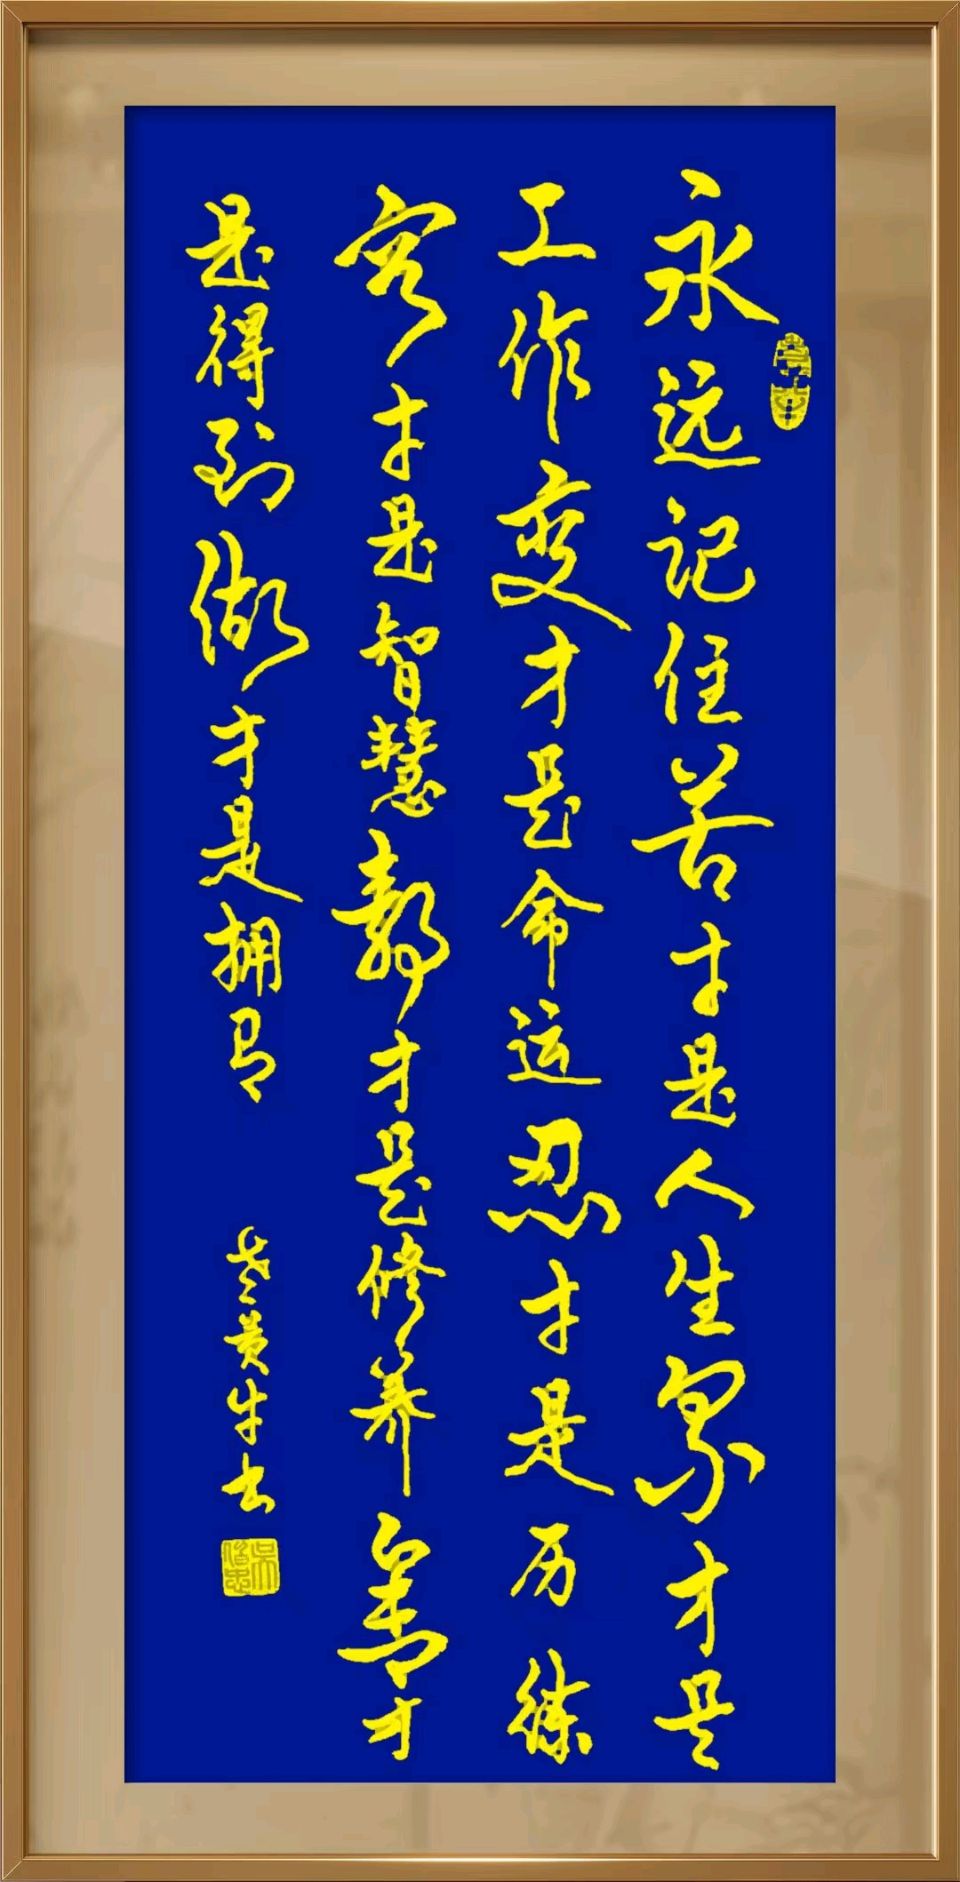 永远记住苦才是人生累才是
工作变才是命运忍才是历练
容才是智慧静才是修养舍才
是得到做才是拥有
老黄牛书